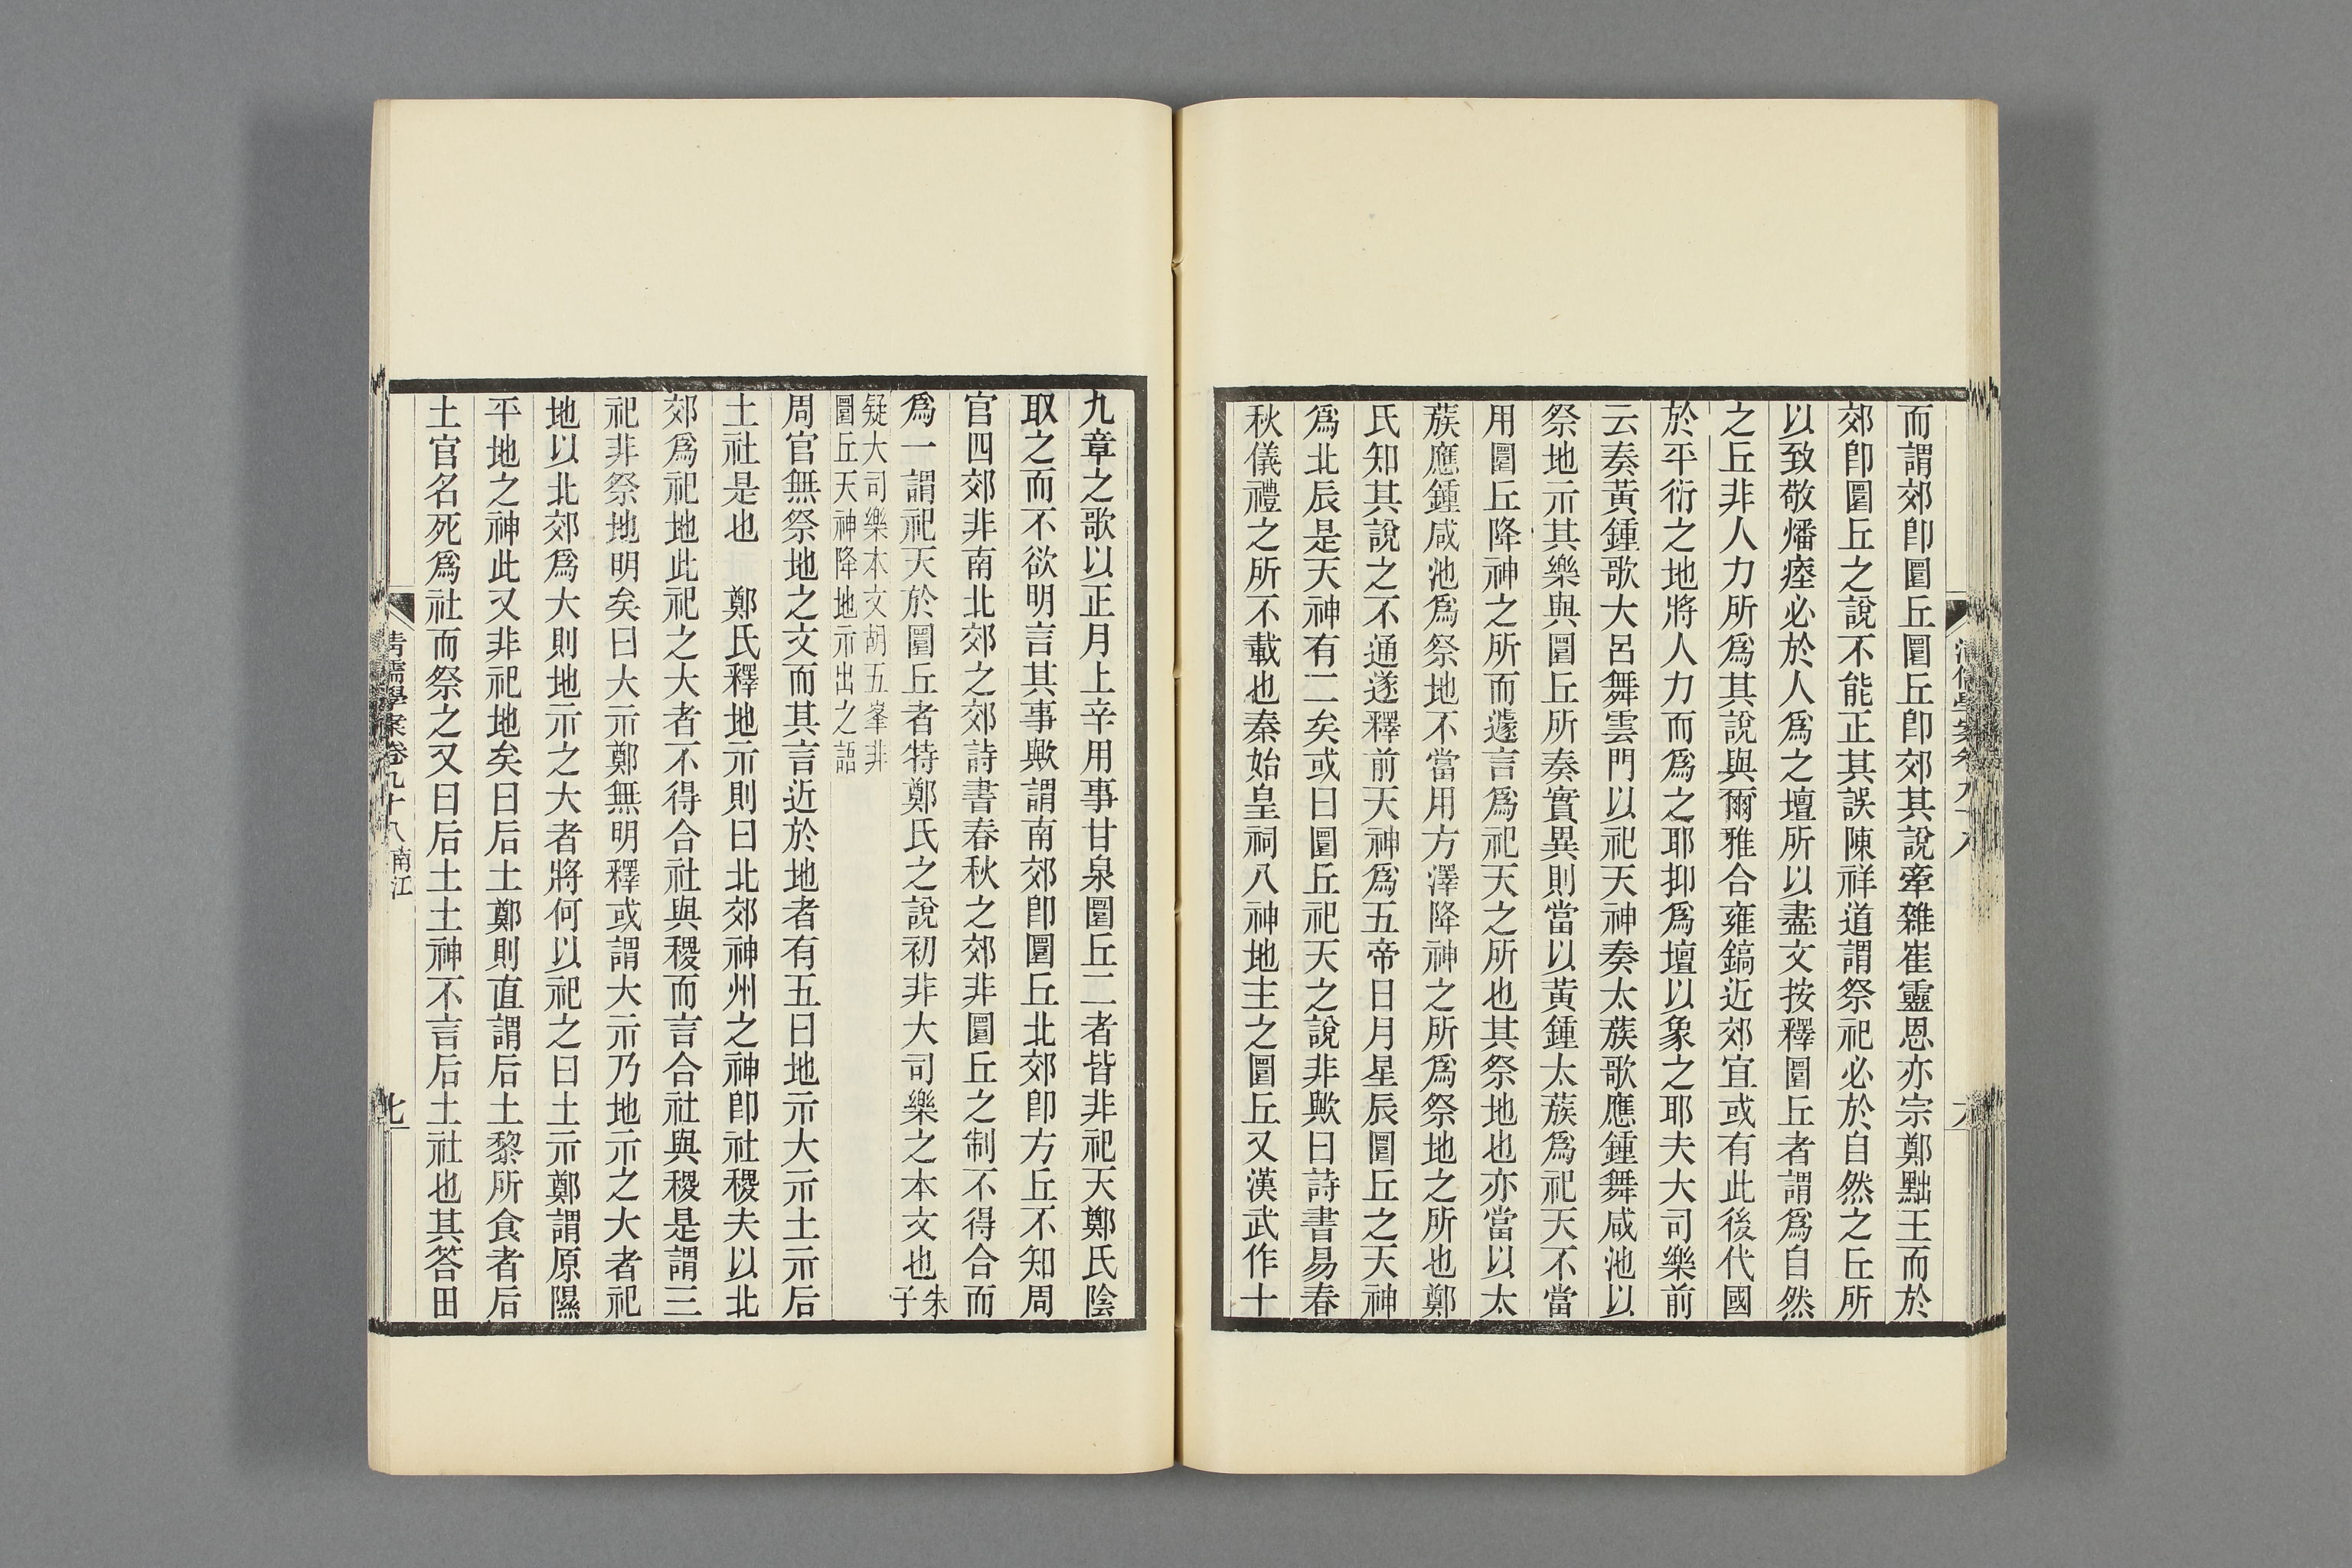 而謂郊卽圜丘圜丘卽郊其說牽雜崔靈恩亦宗鄭黜王而於
郊卽圜丘之說不能正其誤陳祥道謂祭祀必於自然之丘所
以致敬燔瘞必於人爲之壇所以盡文按釋圜丘者謂爲自然
之丘非人力所爲其說與爾雅合雍鎬近郊宜或有此後代國
於平衍之地將人力而爲之耶抑爲壇以象之耶夫大司樂前
云奏黃鍾歌大呂舞雲門以祀天神奏太蔟歌應鍾舞咸池以
祭地示其樂與圜丘所奏實異則當以黃鍾太蔟爲祀天不當
用圜丘降神之所而遽言爲祀天之所也其祭地也亦當以太
蔟應鍾咸池爲祭地不當用方澤降神之所爲祭地之所也鄭
氏知其說之不通遂釋前天神爲五帝日月星辰圜丘之天神
爲北辰是天神有二矣或曰圜丘祀天之說非歟曰詩書易春
秋儀禮之所不載也秦始皇祠八神地主之圜丘又漢武作十
九章之歌以正月上辛用事甘泉圜丘二者皆非祀天鄭氏陰
取之而不欲明言其事歟謂南郊卽圜丘北郊卽方丘不知周
官四郊非南北郊之郊詩書春秋之郊非圜丘之制不得合而
爲一謂祀天於圜丘者特鄭氏之說初非大司樂之本文也朱子
疑大司樂本文胡五峯非
圜丘天神降地示出之語
周官無祭地之文而其言近於地者有五曰地示大示土示后
土社是也　鄭氏釋地示則曰北郊神州之神卽社稷夫以北
郊爲祀地此祀之大者不得合社與稷而言合社與稷是謂三
祀非祭地明矣曰大示鄭無明釋或謂大示乃地示之大者祀
地以北郊爲大則地示之大者將何以祀之曰土示鄭謂原隰
平地之神此又非祀地矣曰后土鄭則直謂后土黎所食者后
土官名死爲社而祭之又曰后土土神不言后土社也其答田
清儒學案卷九十八 南江
七